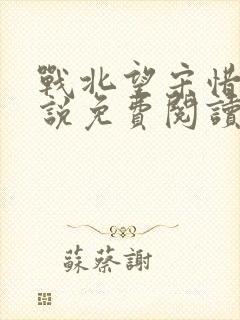 戰北望宋惜
說免費閱讀
蘇蔡謝